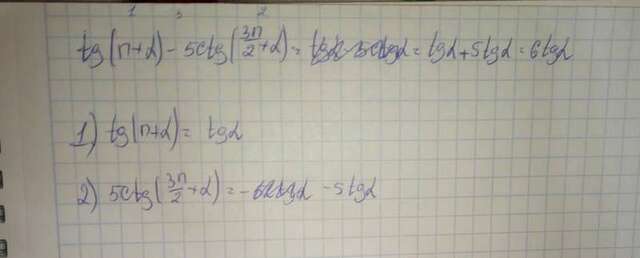 1 3 2
tg(π+α) - 5ctg(3π/2+α) = = tgα+5tgα = 6tgα
1) tg(π+α) = tgα
2) 5ctg(3π/2+α) = - -5tgα